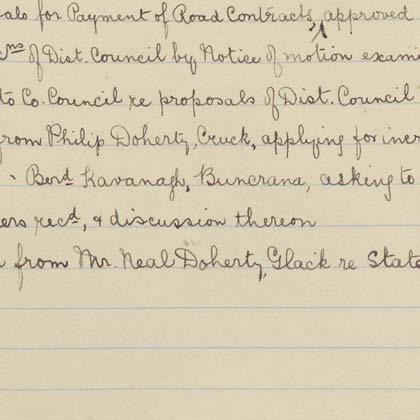 als for Payment of Road Contracts, approved
of Dist. Council by Notice of motion exami
to Co. Council re proposals of Dist. Council
from Philip Doherty, Cruck, applying for incr
" Bernd Kavanagh, Buncrana, asking to
ers recd, & discussion thereon
from Mr. Neal Doherty, Glack re State